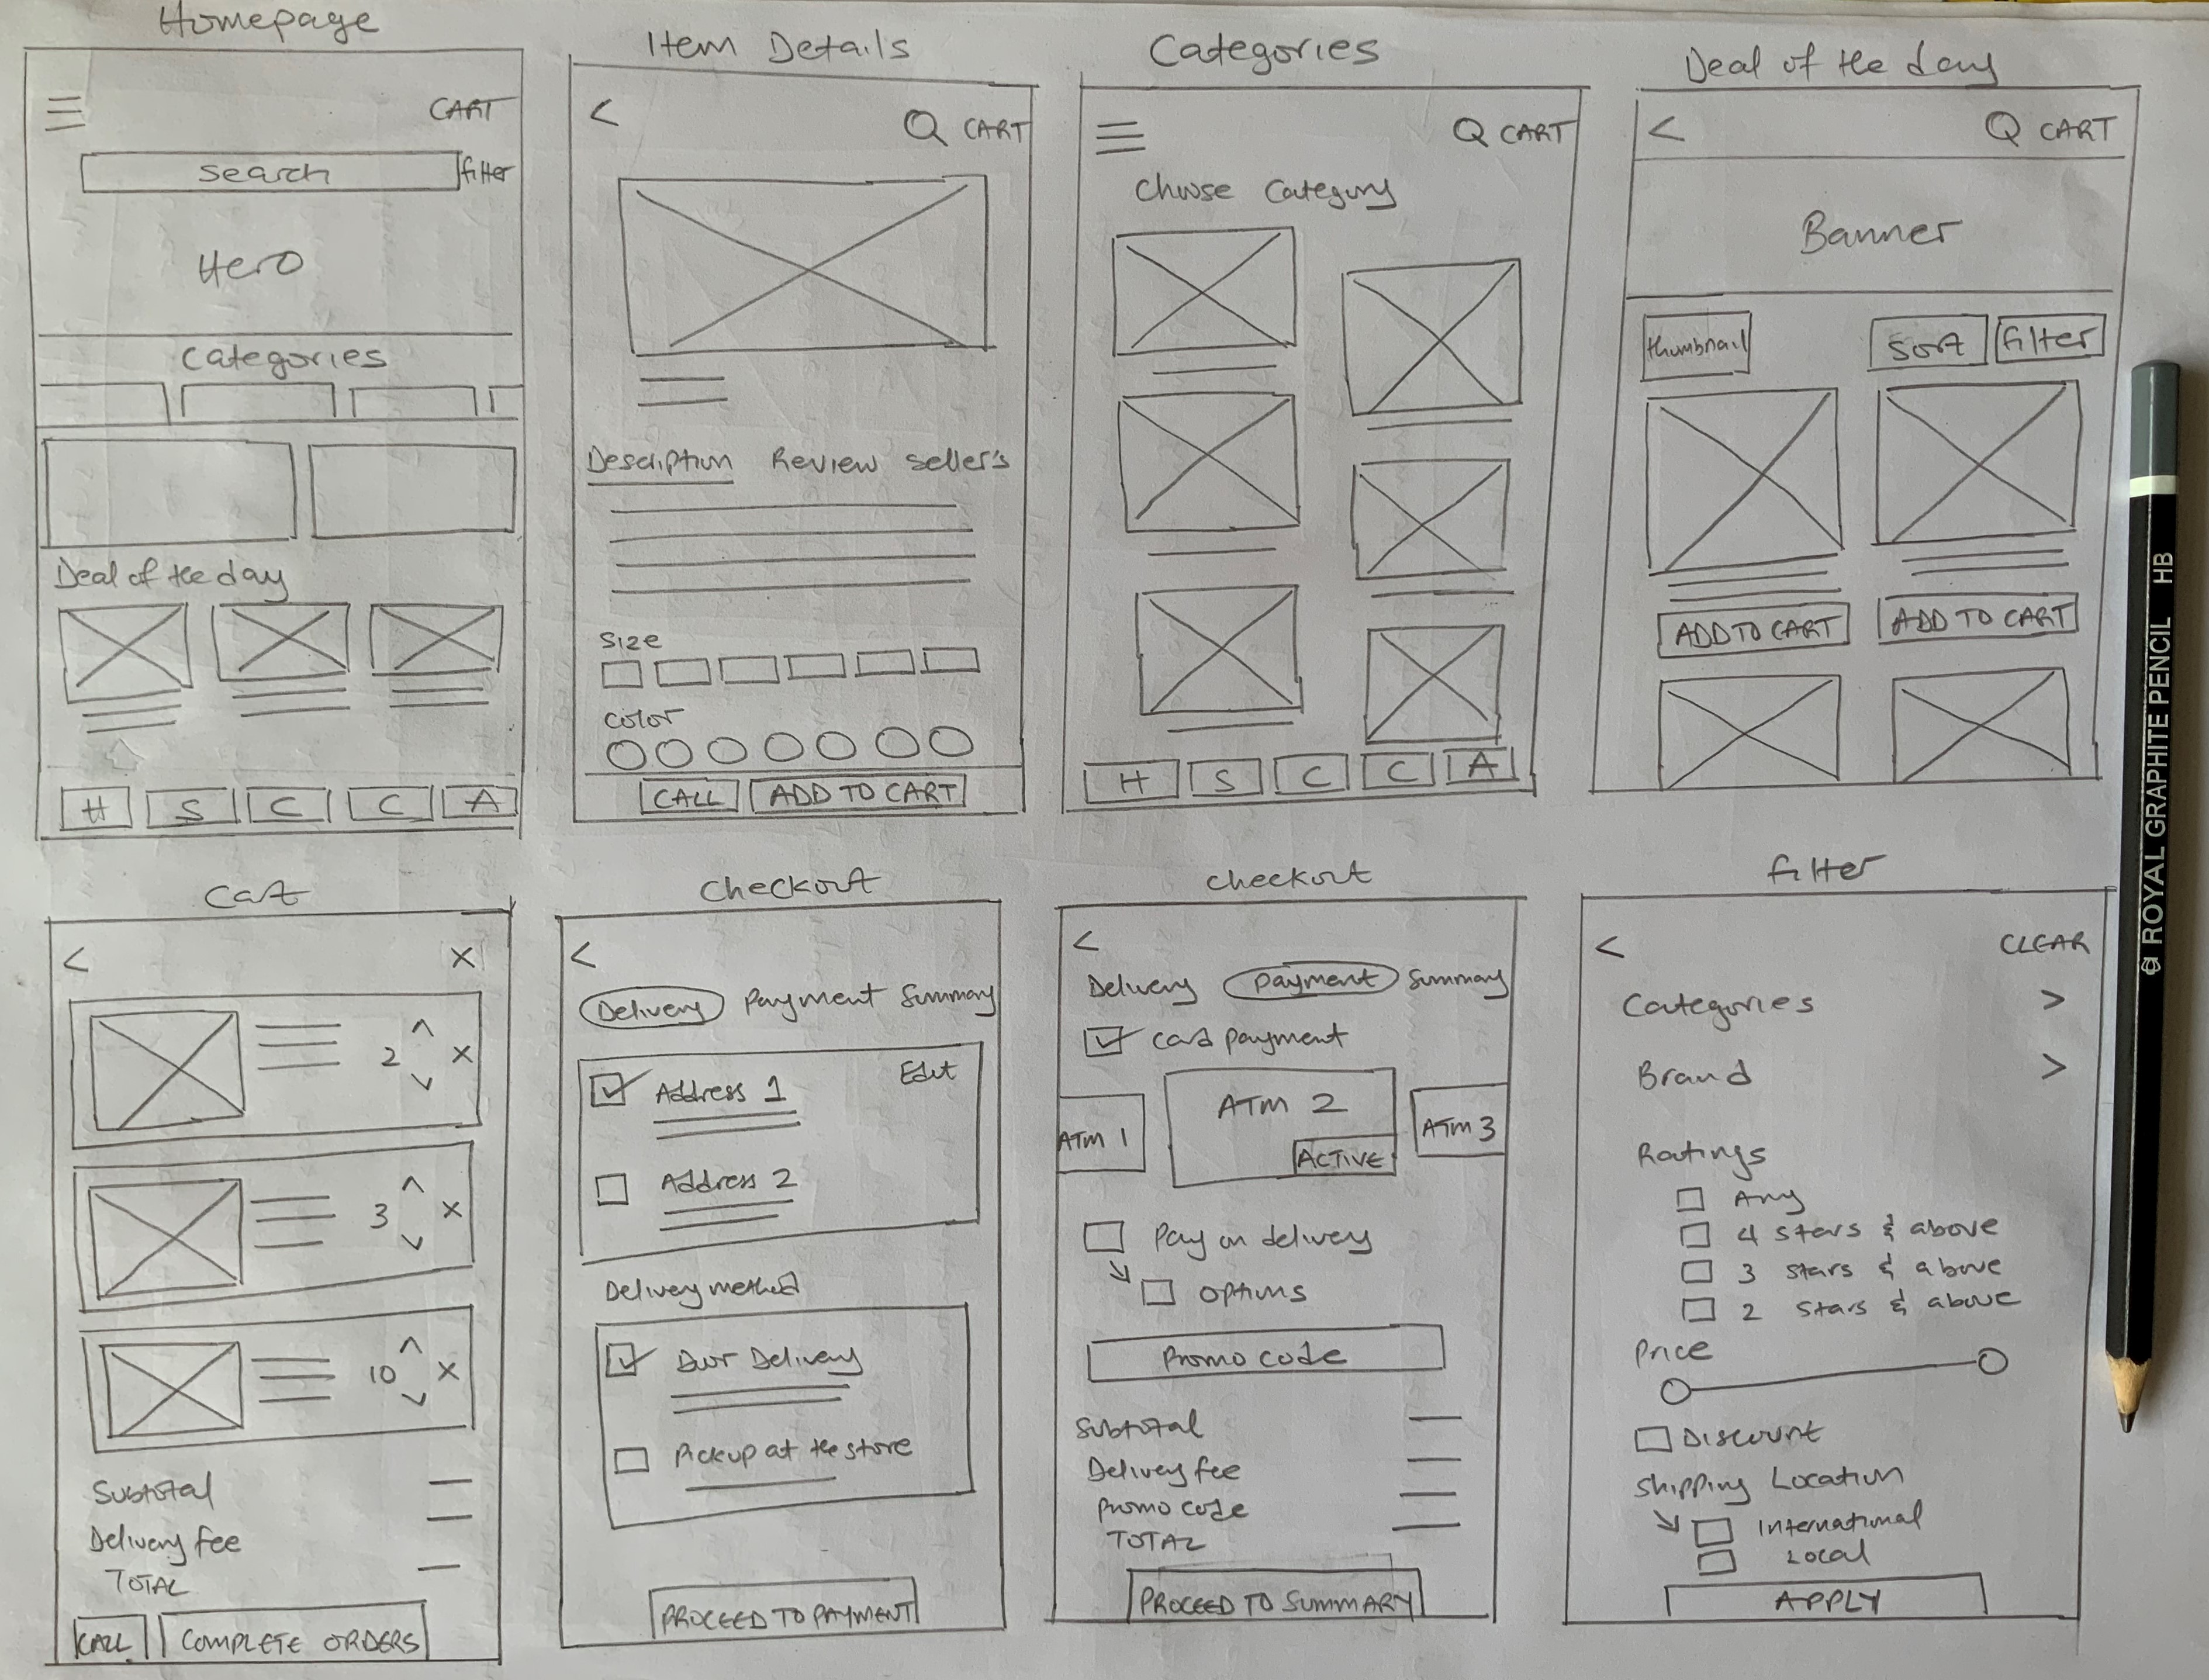 Homepage
CART
Search
filter
Hero
Categories
Deal of the day
H S C C A
Item Details
< Q CART
Description Review Seller's
Size
Color
CALL ADD TO CART
Categories
Q CART
Choose Category
H S C C A
Deal of the day
< Q CART
Banner
thumbnail Sort Filter
ADD TO CART ADD TO CART
Cart
< X
2 X
3 X
10 X
Subtotal
Delivery fee
TOTAL
CALL COMPLETE ORDERS
Checkout
<
Delivery Payment Summary
Address 1 Edit
Address 2
Delivery method
Door Delivery
Pickup at the store
PROCEED TO PAYMENT
checkout
<
Delivery Payment Summary
Card payment
ATM 1 ATM 2 ATM 3
ACTIVE
Pay on delivery
options
Promo code
Subtotal
Delivery fee
Promo code
TOTAL
PROCEED TO SUMMARY
filter
< CLEAR
Categories >
Brand >
Ratings
Any
4 stars & above
3 stars & above
2 stars & above
Price
Discount
Shipping Location
International
Local
APPLY
ROYAL GRAPHITE PENCIL HB